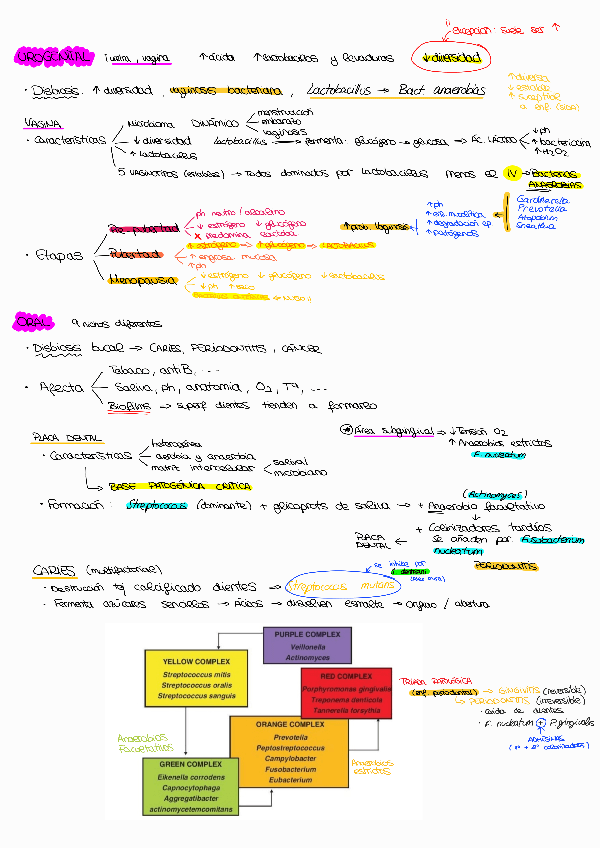 !! excepción: suele ser ↑
UROGENITAL (uretra, vagina) ↑ácida ↑lactobacilos y levaduras ↓diversidad
· Disbiosis: ↑ diversidad, vaginosis bacteriana, Lactobacillus → Bact. anaerobias
↑ diversa
↓ estable
↑ susceptible a enf. (sida)
VAGINA
· Características
Microbioma DINÁMICO
menstruación
embarazo
vaginosis
↓ diversidad
↑ lactobacillus
Lactobacillus → fermenta: glucógeno → glucosa → Ác. LÁCTICO
↓ ph
↑ bactericana
↑ H2O2
5 VAGINOTIPOS (estables) → Todos dominados por lactobacillus menos el IV → Bacterias ANAEROBIAS
Gardnerella
Prevotella
Atopobium
Sneathia
↑ prob. vaginosis
↑ ph
↑ degradación ep.
↑ patógenos
· Etapas
Pre-pubertad
ph neutro / alcalino
↓ estrógeno ↓ glucógeno
Pubertad
↑ estrógeno → ↑ glucógeno → lactobacillus
↑ engrosa. mucosa
↑ ph
Menopausia
↓ estrógeno ↓ glucógeno ↓ lactobacillus
ORAL 9 nichos diferentes
· Disbiosis bucal → CARIES, PERIODONTITIS, CÁNCER
· Afecta
Tabaco, antiB, ...
Saliva, ph, anatomia, O2, Tª, ...
Biofilms → superf dientes tienden a formarlo
PLACA DENTAL
· Características
heterogénea
aerobia y anaerobia
matriz intercelular
salival
microbiano
→ BASE PATOGÉNICA CRÍTICA
* Área subgingival → ↓ Tensión O2
↑ Anaerobios estrictos
F. nucleatum
· Formación: Streptococcus (dominante) + glicoprots de saliva → + Anaerobio facultativo
(Actinomyces)
+ Colonizadores tardíos
se añaden por Fusobacterium nucleatum
PLACA DENTAL
PERIODONTITIS
CARIES (multifactorial)
· Destrucción tej calcificado dientes → streptococcus mutans
se inhibe por
· Fermenta azúcares sencillos → Ácidos → disuelven esmalte → orificio / abertura
PURPLE COMPLEX
Veillonella
Actinomyces
YELLOW COMPLEX
Streptococcus mitis
Streptococcus oralis
Streptococcus sanguis
RED COMPLEX
Porphyromonas gingivalis
Treponema denticola
Tannerella forsythia
ORANGE COMPLEX
Prevotella
Peptostreptococcus
Campylobacter
Fusobacterium
Eubacterium
GREEN COMPLEX
Eikenella corrodens
Capnocytophaga
Aggregatibacter
actinomycetemcomitans
Anaerobios Facultativos
Anaerobios estrictos
TRIADA PATOLÓGICA
(enf. periodontal) → GINGIVITIS (reversible)
→ PERIODONTITIS (irreversible)
· caída de dientes
· F. nucleatum + P. gingivalis
ADHESINAS
(1º + 2º colonizadores)